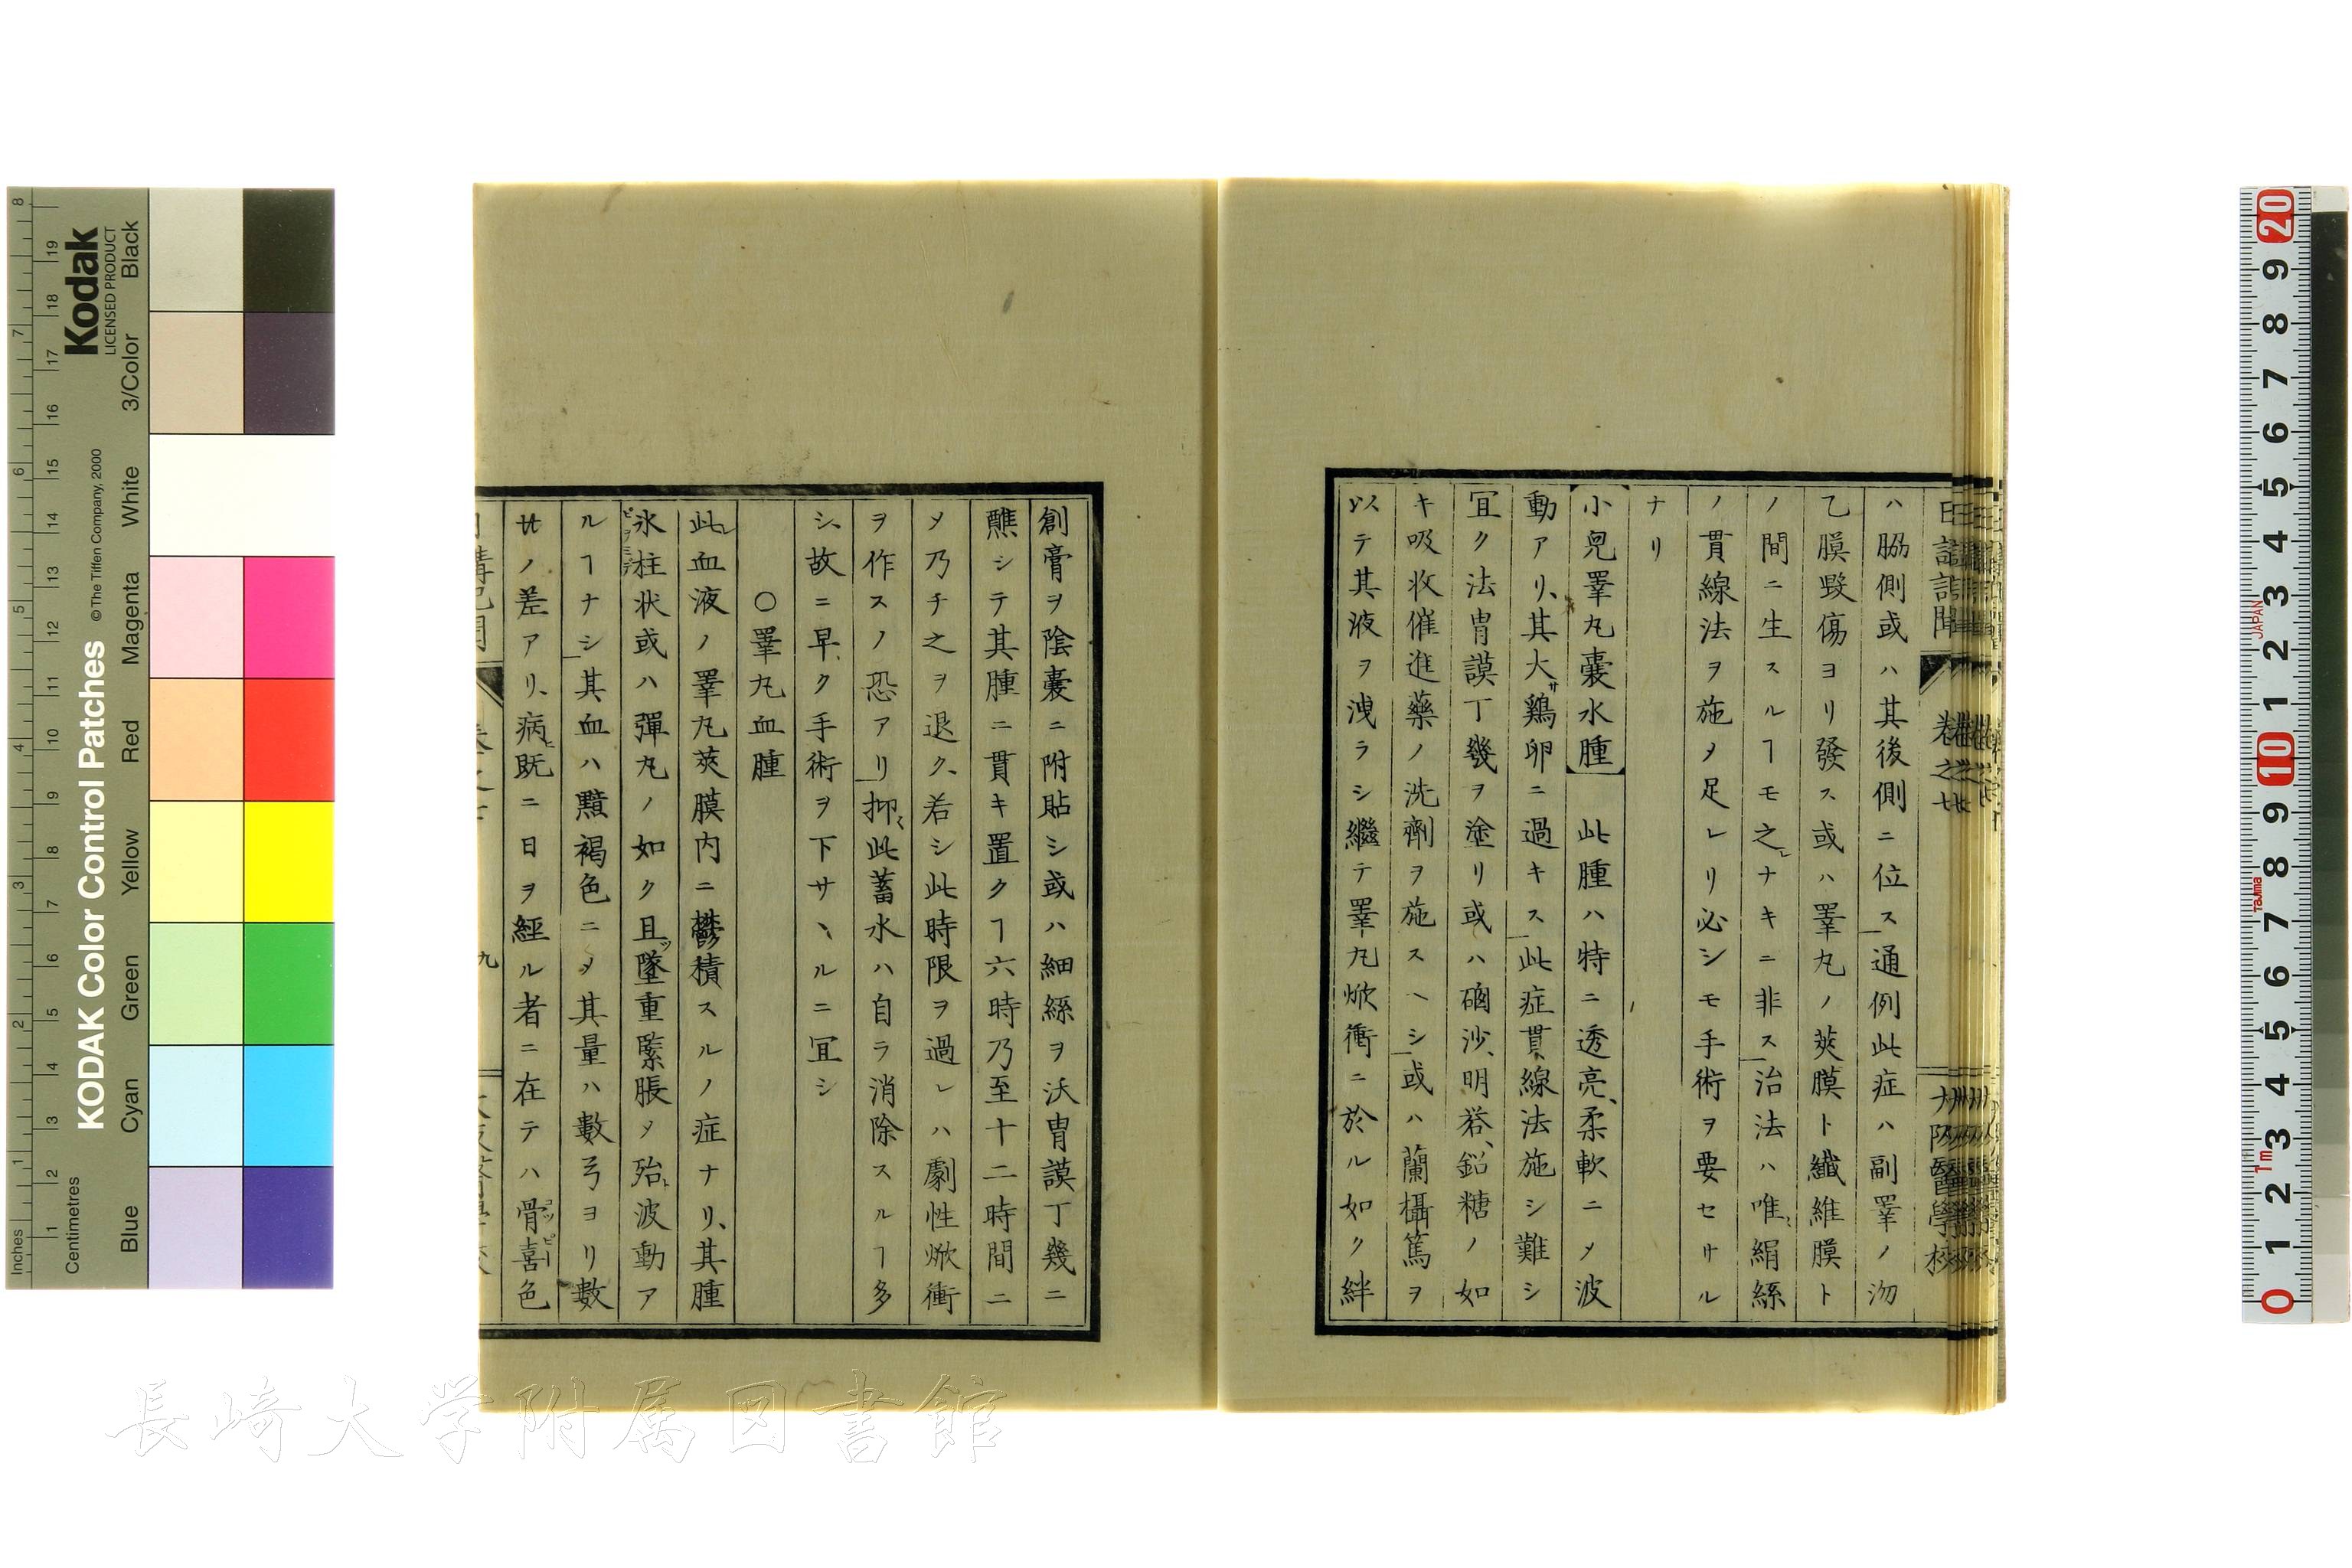 ハ脇側或ハ其後側ニ位ス通例此症ハ副睪ノ沕
乙膜毀傷ヨリ發ス或ハ睪丸ノ莢膜ト纎維膜ト
ノ間ニ生スルヿモ之レナキニ非ス治法ハ唯絹絲
ノ貫線法ヲ施メ足レリ必シモ手術ヲ要セサル
ナリ
小兒睪丸囊水腫 此腫ハ特ニ透亮、柔軟ニメ波
動アリ、其大サ鷄卵ニ過キス此症貫線法施シ難シ
宜ク法胄謨丁幾ヲ塗リ或ハ硇沙、明礬、鉛糖ノ如
キ吸收催進藥ノ洗劑ヲ施スヘシ或ハ蘭櫑篤ヲ
以テ其液ヲ洩ラシ繼テ睪丸焮衝ニ於ル如ク絆
創膏ヲ陰囊ニ附貼シ或ハ細絲ヲ沃胄謨丁幾ニ
醮シテ其腫ニ貫キ置クヿ六時乃至十二時間ニ
メ乃チ之ヲ退ク、若シ此時限ヲ過レハ劇性焮衝
ヲ作スノ恐アリ抑此蓄水ハ自ラ消除スルヿ多
シ、故ニ早ク手術ヲ下サヽルニ宜シ
○睪丸血腫
此レ血液ノ睪丸莢膜内ニ鬱積スルノ症ナリ、其腫
氷柱状或ハ彈丸ノ如ク且ツ墜重緊脹メ殆ト波動ア
ルヿナシ其血ハ黯褐色ニメ其量ハ數弓ヨリ數
廿ノ差アリ、病ヒ既ニ日ヲ經ル者ニ在テハ骨喜色
日講記聞
卷之廿
大阪醫學校
九
KODAK Color Control Patches
© The Tiffen Company, 2000
Kodak
LICENSED PRODUCT
Inches
Centimetres
Blue
Cyan
Green
Yellow
Red
Magenta
White
3/Color
Black
JAPAN
Tajima
1m
長崎大学附属図書館